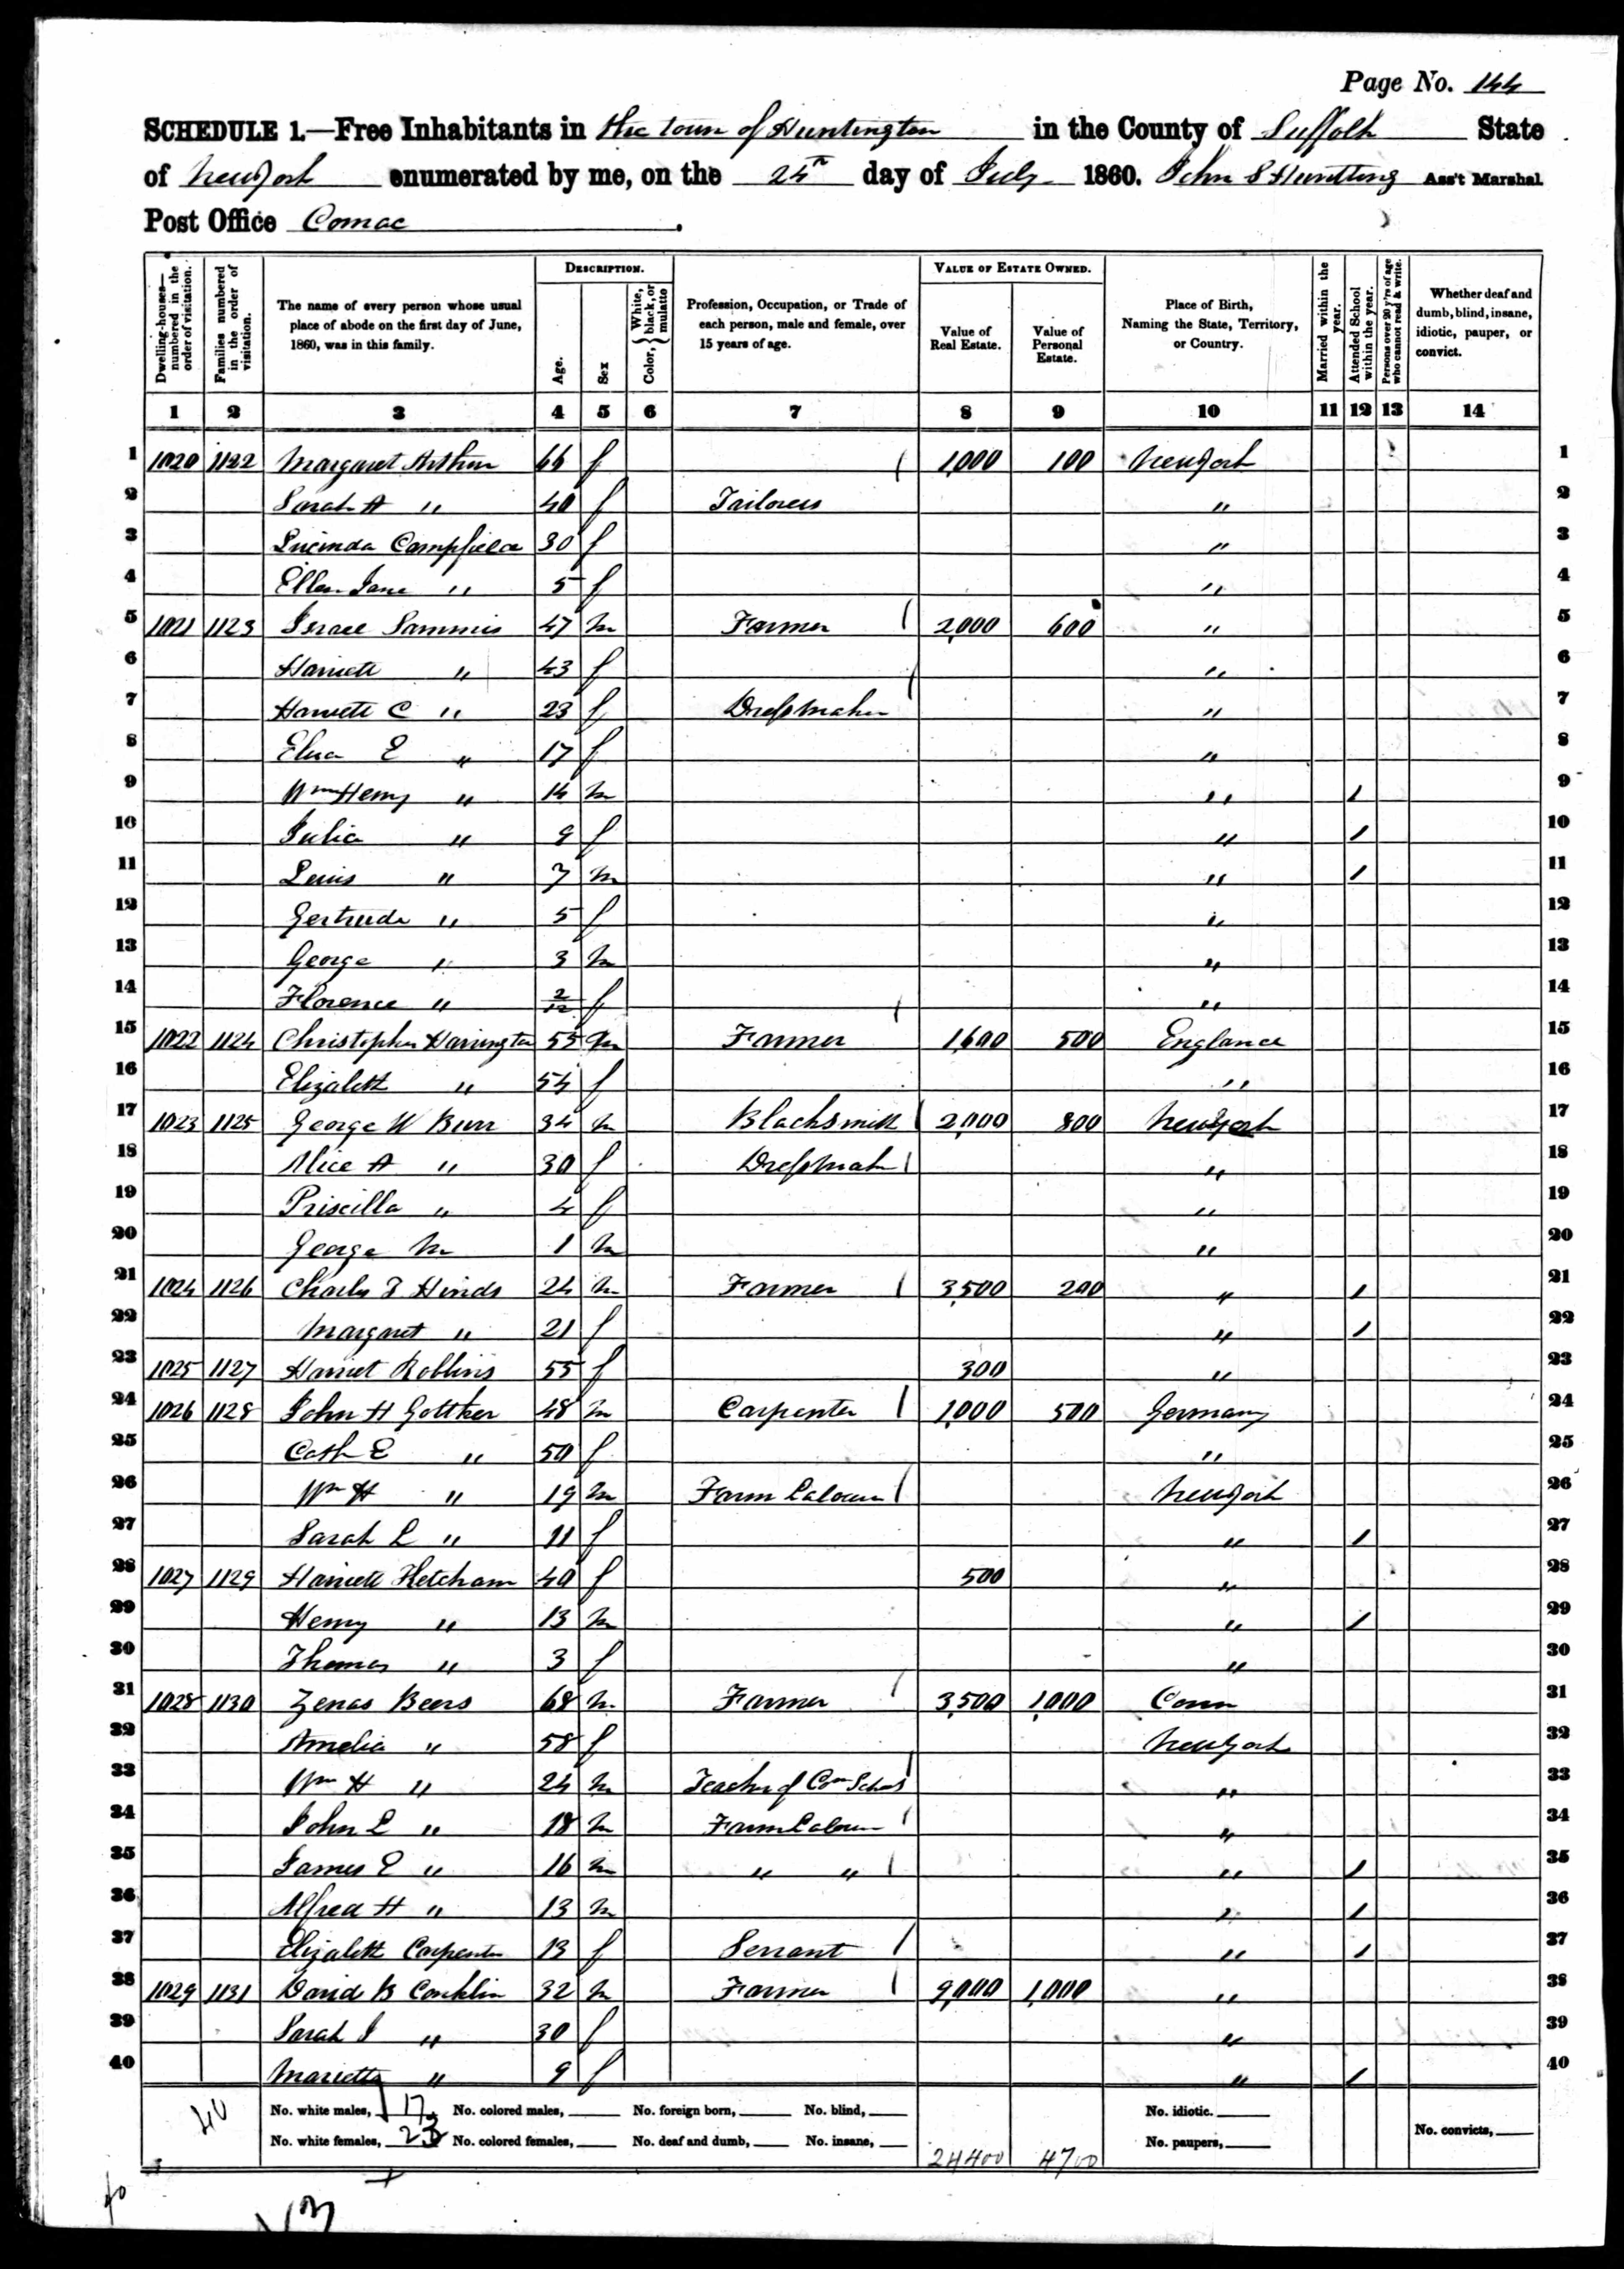 Page No. 144
SCHEDULE 1.—Free Inhabitants in the town of Huntington in the County of Suffolk State
of New York enumerated by me, on the 25th day of July 1860. John S Huntting Ass't Marshal
Post Office Comac
Dwelling-houses—numbered in the order of visitation.
Families numbered in the order of visitation.
The name of every person whose usual place of abode on the first day of June, 1860, was in this family.
DESCRIPTION.
Age.
Sex
Color, { White, black, or mulatto
Profession, Occupation, or Trade of each person, male and female, over 15 years of age.
VALUE OF ESTATE OWNED.
Value of Real Estate.
Value of Personal Estate.
Place of Birth, Naming the State, Territory, or Country.
Married within the year.
Attended School within the year.
Persons over 20 y'rs of age who cannot read & write.
Whether deaf and dumb, blind, insane, idiotic, pauper, or convict.
1 2 3 4 5 6 7 8 9 10 11 12 13 14
1 1020 1122 Margaret Arthur 66 f 1,000 100 New York 1
2 Sarah A " 40 f Tailoress " 2
3 Lucinda Campfield 30 f " 3
4 Ellen Jane " 5 f " 4
5 1021 1123 Israel Sammis 47 m Farmer 2,000 600 " 5
6 Hariett " 43 f " 6
7 Hariett C " 23 f Dressmaker " 7
8 Eliza E " 17 f " 8
9 Wm Henry " 14 m " / 9
10 Julia " 9 f " / 10
11 Lewis " 7 m " / 11
12 Gertrude " 5 f " 12
13 George " 3 m " 13
14 Florence " 2/12 f " 14
15 1022 1124 Christopher Harrington 55 m Farmer 1,600 500 England 15
16 Elizabeth " 54 f " 16
17 1023 1125 George W Burr 34 m Blacksmith 2,000 800 New York 17
18 Alice A " 30 f Dressmak " 18
19 Priscilla " 4 f " 19
20 George M 1 m " 20
21 1024 1126 Charles T Hinds 24 m Farmer 3,500 200 " / 21
22 Margaret " 21 f " / 22
23 1025 1127 Harriet Robbins 55 f 300 " 23
24 1026 1128 John H Gottker 48 m Carpenter 1,000 500 Germany 24
25 Cath E " 50 f " 25
26 Wm H " 19 m Farm Laborer New York 26
27 Sarah L " 11 f " / 27
28 1027 1129 Hariett Ketcham 40 f 500 " 28
29 Henry " 13 m " / 29
30 Thomas " 3 f " 30
31 1028 1130 Zenas Beers 68 m Farmer 3,500 1,000 Conn 31
32 Amelia " 58 f New York 32
33 Wm H " 24 m Teacher of Com School " 33
34 John L " 18 m Farm Laborer " 34
35 James E " 16 m " " " / 35
36 Alfred H " 13 m " / 36
37 Elizabeth Carpenter 13 f Servant " / 37
38 1029 1131 David B Conklin 32 m Farmer 9,000 1,000 " 38
39 Sarah J " 30 f " 39
40 Marietta " 9 f " / 40
40 No. white males, 17 No. colored males, No. foreign born, No. blind, No. idiotic.
No. white females, 23 No. colored females, No. deaf and dumb, No. insane, 24400 4700 No. paupers, No. convicts,
40